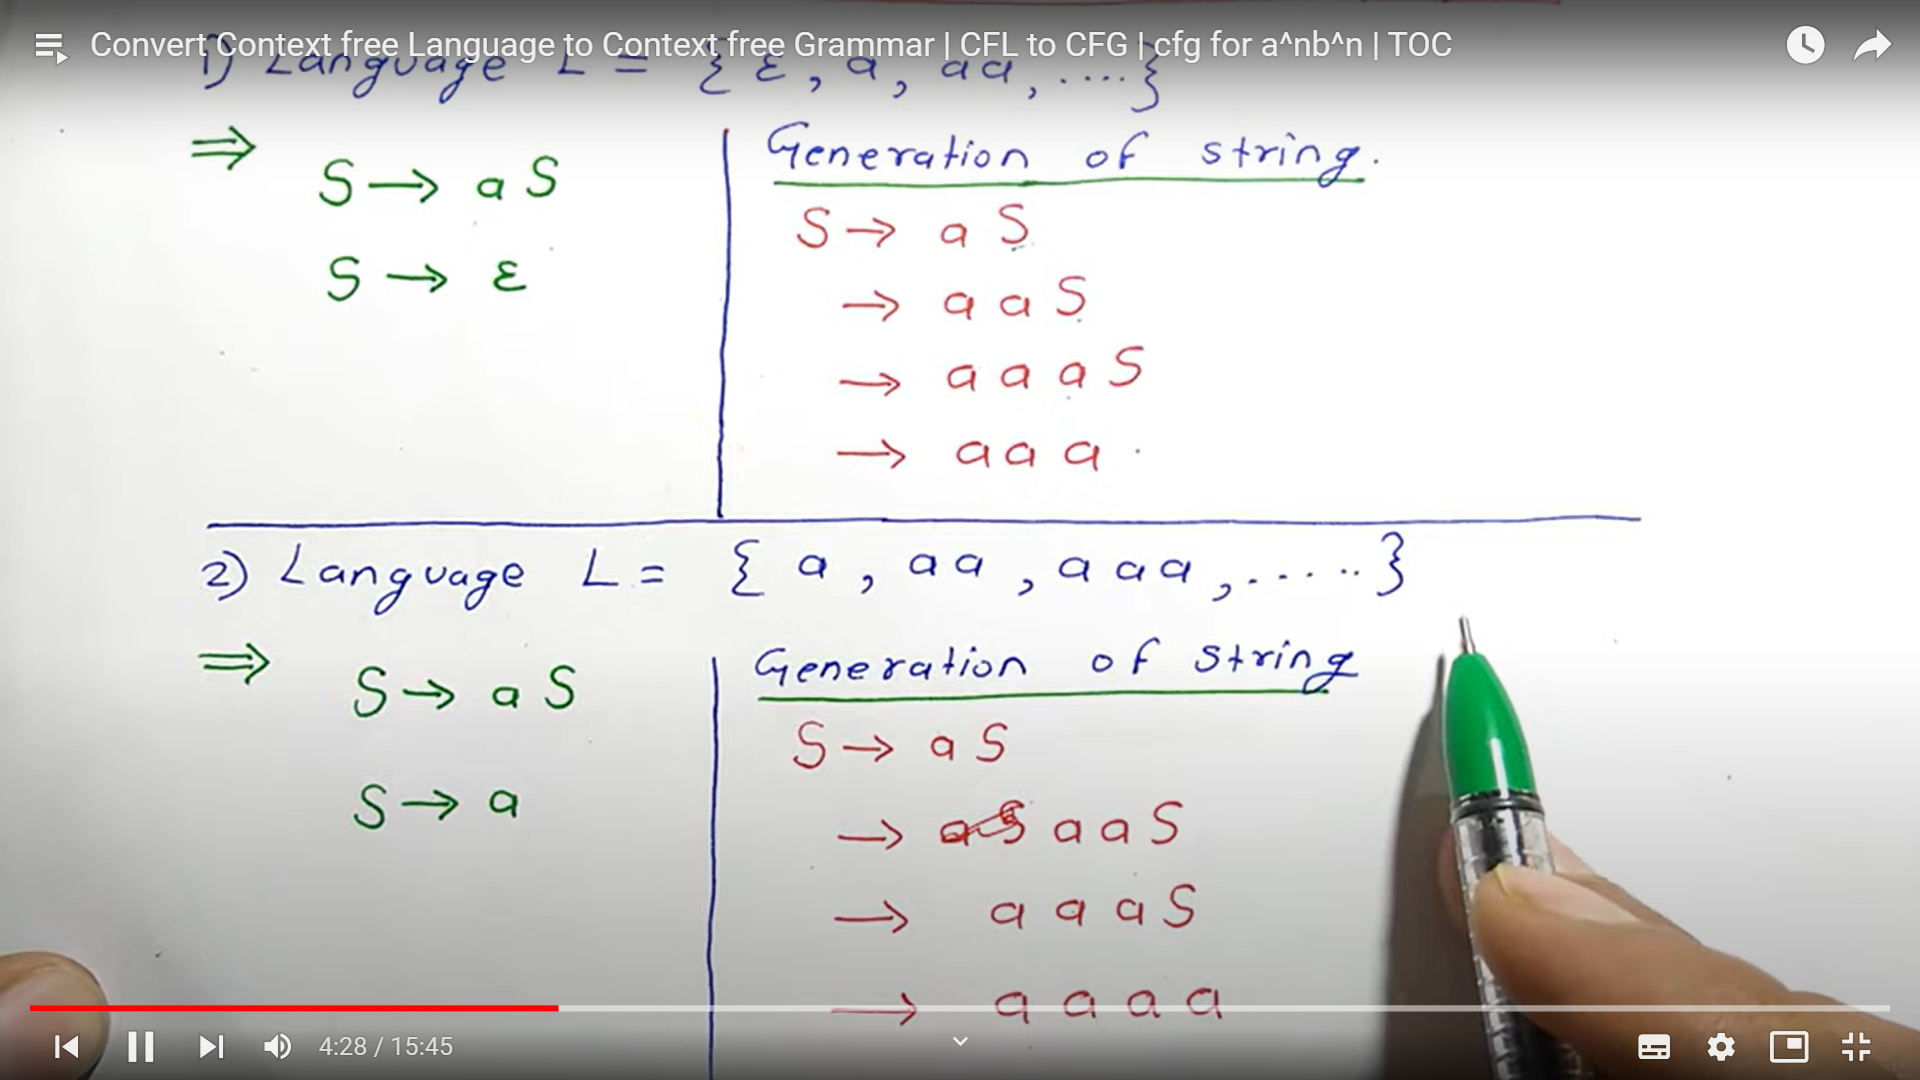 Convert Context free Language to Context free Grammar | CFL to CFG | cfg for a^nb^n | TOC
1) Language L = { ε, a, aa, ....}
⇒ S → aS
S → ε
Generation of string.
S → a S
→ a a S
→ a a a S
→ a a a
2) Language L = { a, aa, aaa, ..... }
⇒ S → aS
S → a
Generation of string
S → aS
→ aS a a S
→ a a a S
→ a a a a
4:28 / 15:45